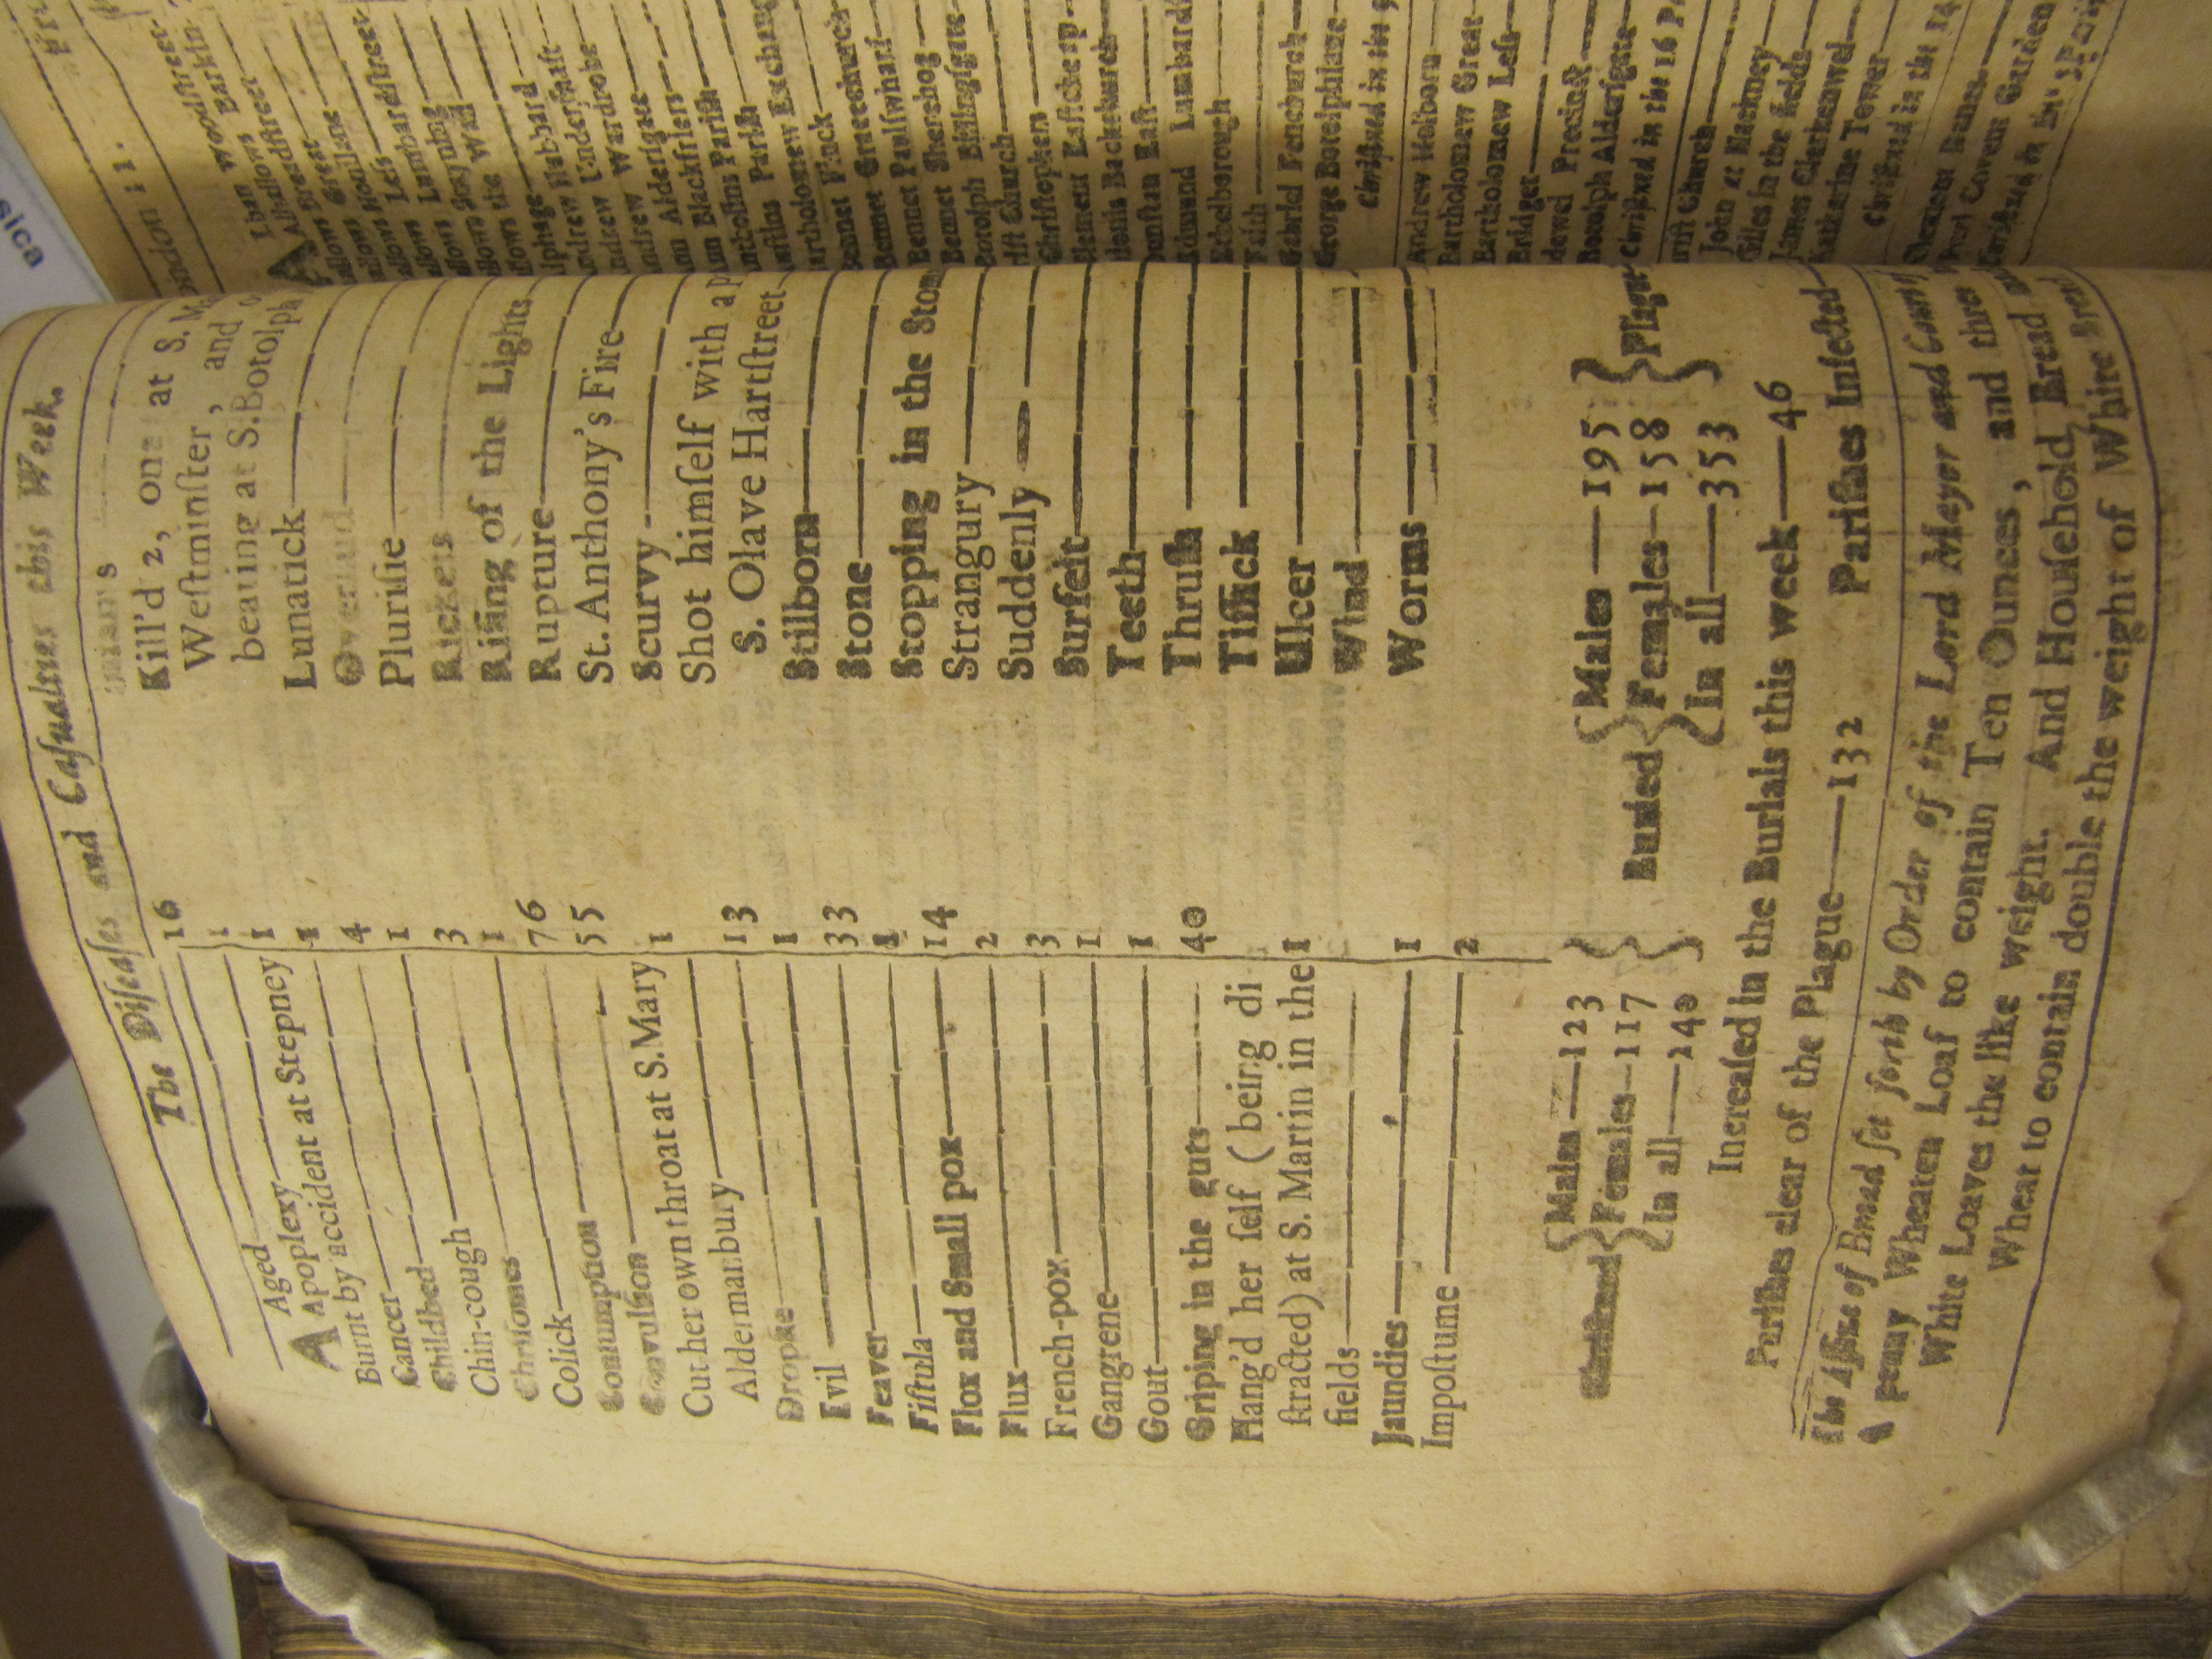 The Diſeaſes and Caſualties this Week.
Aged 16
Apoplexy 1
Burnt by accident at Stepney 1
Cancer 1
Childbed 4
Chin-cough 1
Chriſomes 3
Colick 1
Conſumption 76
Convulſion 55
Cut her own throat at S. Mary
Aldermanbury 1
Dropſie 13
Evil 1
Feaver 33
Fiſtula 1
Flox and Small pox 14
Flux 2
French-pox 3
Gangrene 1
Gout 1
Griping in the guts 40
Hang'd her ſelf (being di-
ſtracted) at S. Martin in the
fields 1
Jaundies 1
Impoſtume 2
Kill'd 2, one at S.
Weſtminſter, and
beating at S. Botolph
Lunatick
Overlaid
Pluriſie
Rickets
Riſing of the Lights
Rupture
St. Anthony's Fire
Scurvy
Shot himſelf with a
S. Olave Hartſtreet
Stilborn
Stone
Stopping in the
Strangury
Suddenly
Surfeit
Teeth
Thruſh
Tiſſick
Ulcer
Wind
Worms
Chriſtned Males 123 Females 117 In all 240
Buried Males 195 Females 158 In all 353 Plague
Increaſed in the Burials this week 46
Pariſhes clear of the Plague 132 Pariſhes Infected
The Aſſize of Bread ſet forth by Order of the Lord Mayor and Court of
A penny Wheaten Loaf to contain Ten Ounces, and three
White Loaves the like weight. And Houſehold Bread
Wheat to contain double the weight of White Bread
London 11.
Alban Woodſtreet
Alhallows Barkin
Alhallows Breadſtreet
Alhallows Great
allows Honilane
allows Leſs
allows Lumbardſtreet
allows Staining
allows the Wall
Alphage
Andrew Hubbard
Andrew Underſhaft
Andrew Wardrobe
Ann Alderſgate
Ann Blackfriers
Antholins Pariſh
Auſtins Pariſh
Bartholomew Exchange
Bennet Fynck
Bennet Gracechurch
Bennet Paulſwharf
Bennet Sherehog
Botolph Billingſgate
Chriſt Church
Chriſtophers
Clement Eaſtcheap
Dionis Backchurch
Dunſtan Eaſt
Edmund Lumbard
Ethelborough
Faith
Gabriel Fenchurch
George Botolphlane
Chriſtned in the 9
Andrew Holborn
Bartholomew Great
Bartholomew Leſs
Bridget
dewel Precinct
Botolph Alderſgate
Chriſtned in the 16
Chriſt Church
John at Hackney
Giles in the fields
James Clerkenwel
Katharine Tower
Chriſtned in the 14
Clement Danes
Paul Covent Garden
Chriſtned in the
sica